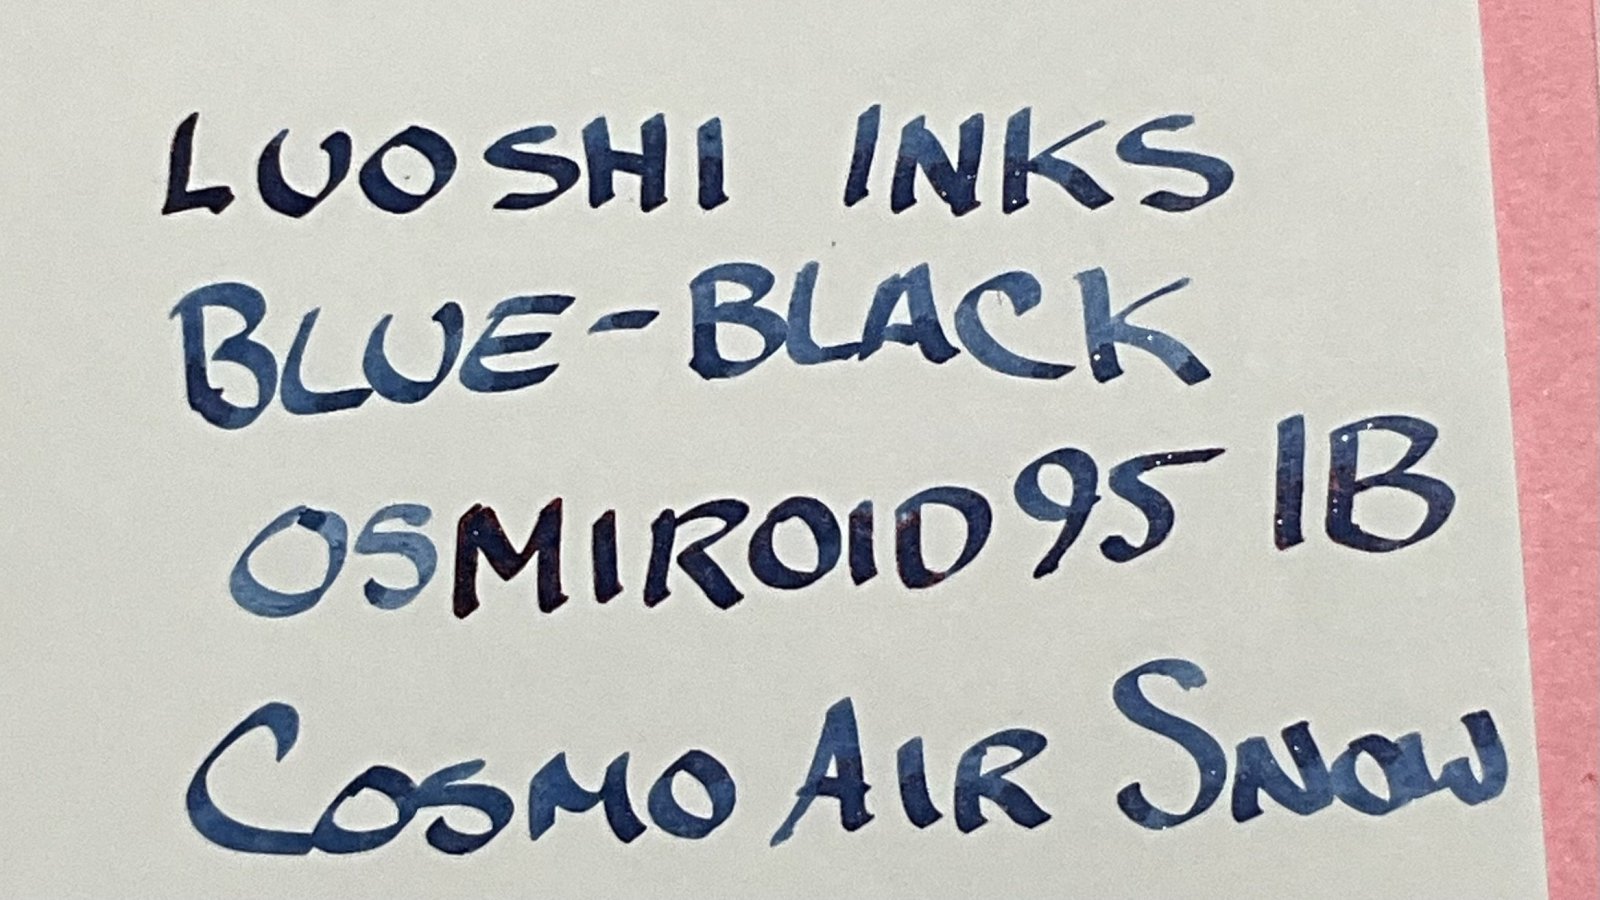 LUOSHI INKS
BLUE-BLACK
OSMIROID 95 IB
COSMO AIR SNOW